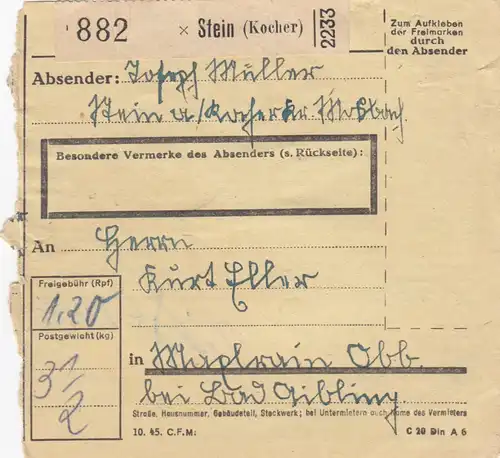 882 × Stein (Kocher) 2233
Zum Aufkleben
der Freimarken
durch
den Absender
Absender: Joseph Müller
Stein a/Kocher Kr. Mosbach.
Besondere Vermerke des Absenders (s. Rückseite):
An Herrn
Kurt Eller
Freigebühr (Rpf)
1.20
Postgewicht (kg)
3 1/2
in Maxlrain Obb.
bei Bad Aibling.
Straße, Hausnummer, Gebäudeteil, Stockwerk; bei Untermietern auch Name des Vermieters
10. 45. C.F.M: C 20 Din A 6